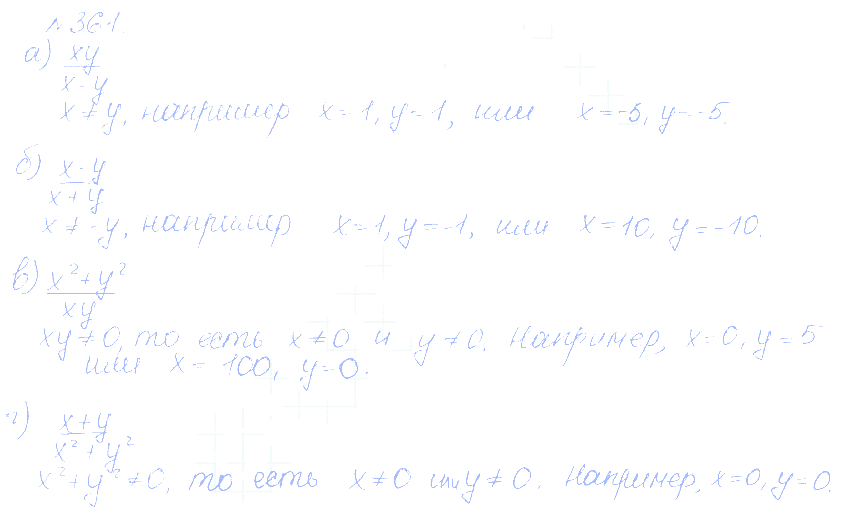 № 361.
а) xy
x - y
x ≠ y, например x = 1, y = 1, или x = -5, y = -5.
б) x - y
x + y
x ≠ -y, например x = 1, y = -1, или x = 10, y = -10.
в) x² + y²
xy
xy ≠ 0, то есть x ≠ 0 и y ≠ 0. Например, x = 0, y = 5
или x = 100, y = 0.
г) x + y
x² + y²
x² + y² ≠ 0, то есть x ≠ 0 или y ≠ 0. Например, x = 0, y = 0.